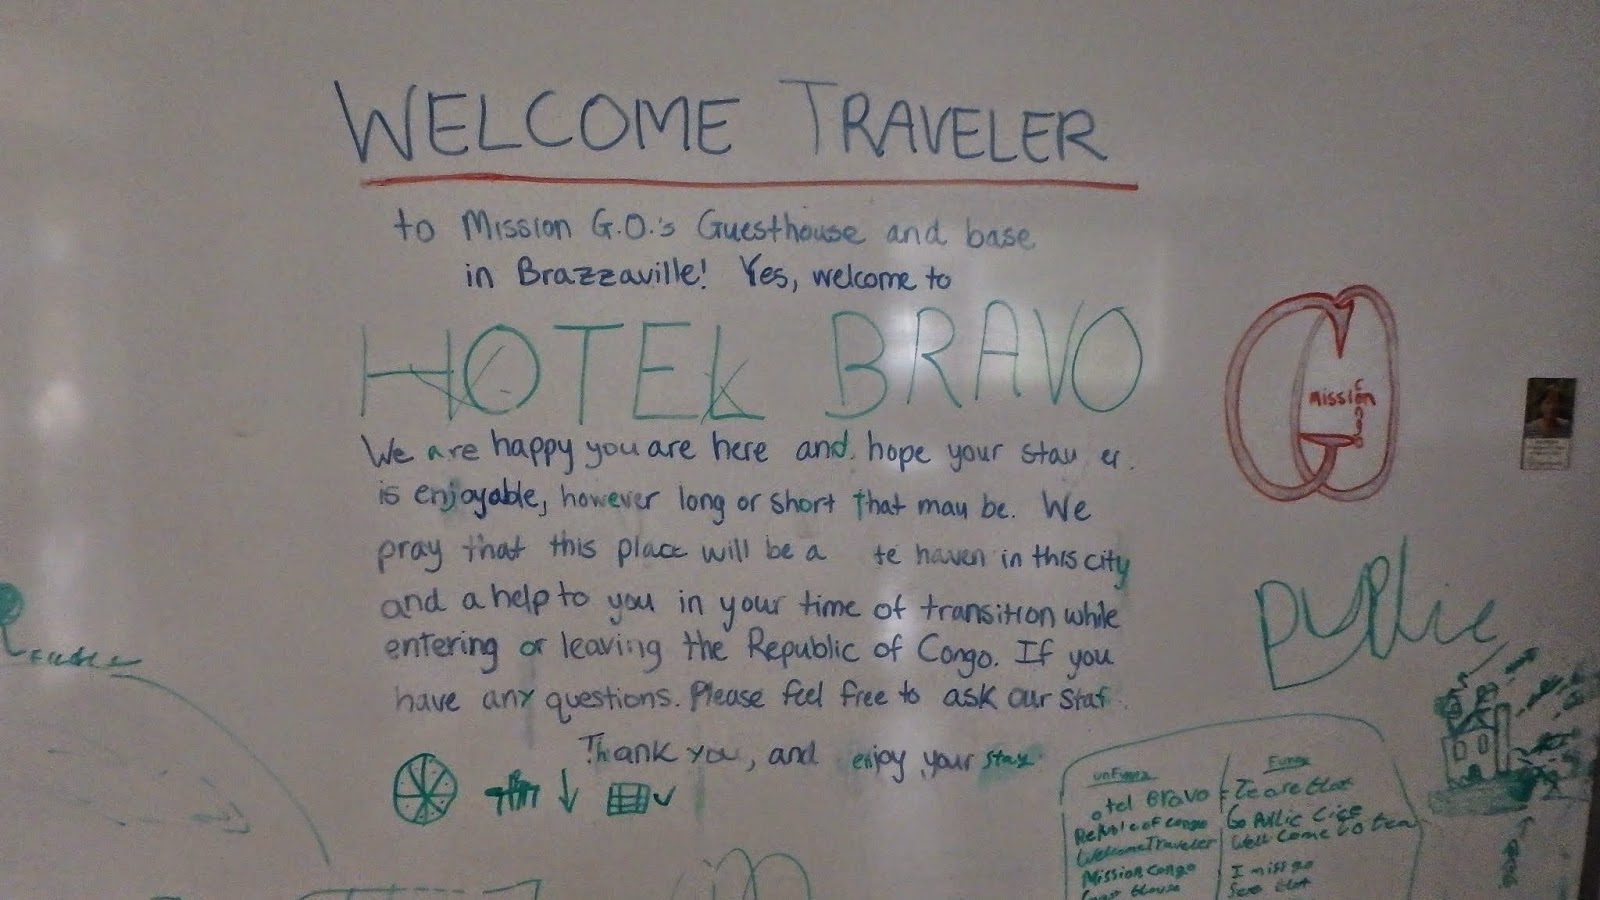 WELCOME TRAVELER
to Mission G.O.'s Guesthouse and base
in Brazzaville! Yes, welcome to
HOTEL BRAVO
We are happy you are here and hope your stay
is enjoyable, however long or short that may be. We
pray that this place will be a haven in this city
and a help to you in your time of transition while
entering or leaving the Republic of Congo. If you
have any questions. Please feel free to ask our staf
Thank you, and enjoy your stay
Mission
unFunny
otel Bravo
of Congo
Welcome Traveler
Mission Congo
Funny
Go
Well Come to tea
I miss go